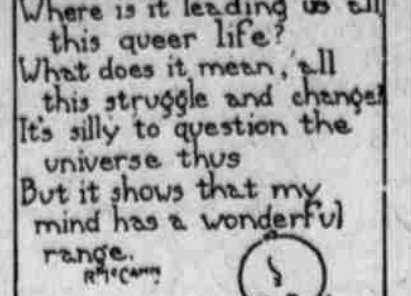 Where is it leading us all
this queer life?
What does it mean, all
this struggle and change?
It's silly to question the
universe thus
But it shows that my
mind has a wonderful
range.
R. McCann